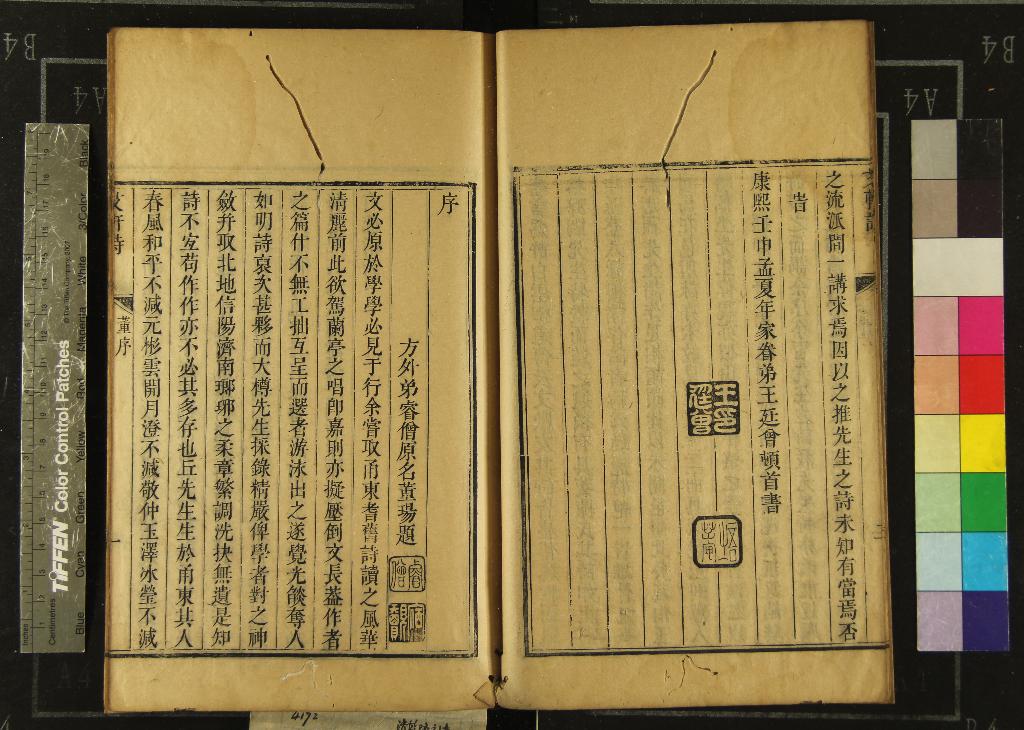 之流派間一講求焉因以之推先生之詩未知有當焉否
旹
康熙壬申孟夏年家眷弟王廷曾頓首書
王印廷曾
序
方外弟睿僧原名董瑒題
文必原於學學必見于行余嘗取甬東耆舊詩讀之風華
清麗前此欲駕蘭亭之唱卽嘉則亦擬壓倒文長葢作者
之篇什不無工拙互呈而選者游泳出之遂覺光燄奪人
如明詩哀次甚夥而大樽先生採錄精嚴俾學者對之神
斂幷取北地信陽濟南瑯琊之柔章繁調洗抉無遺是知
詩不安苟作作亦不必其多存也丘先生生於甬東其人
春風和平不減元彬雲開月澄不減敬仲玉澤冰瑩不減
董序
一
TIFFEN Color Control Patches
© The Tiffen Company, 2007
Centimetres
Inches
Blue
Cyan
Green
Yellow
Red
Magenta
White
3/Color
Black
B4
A4
B4
A4
4172